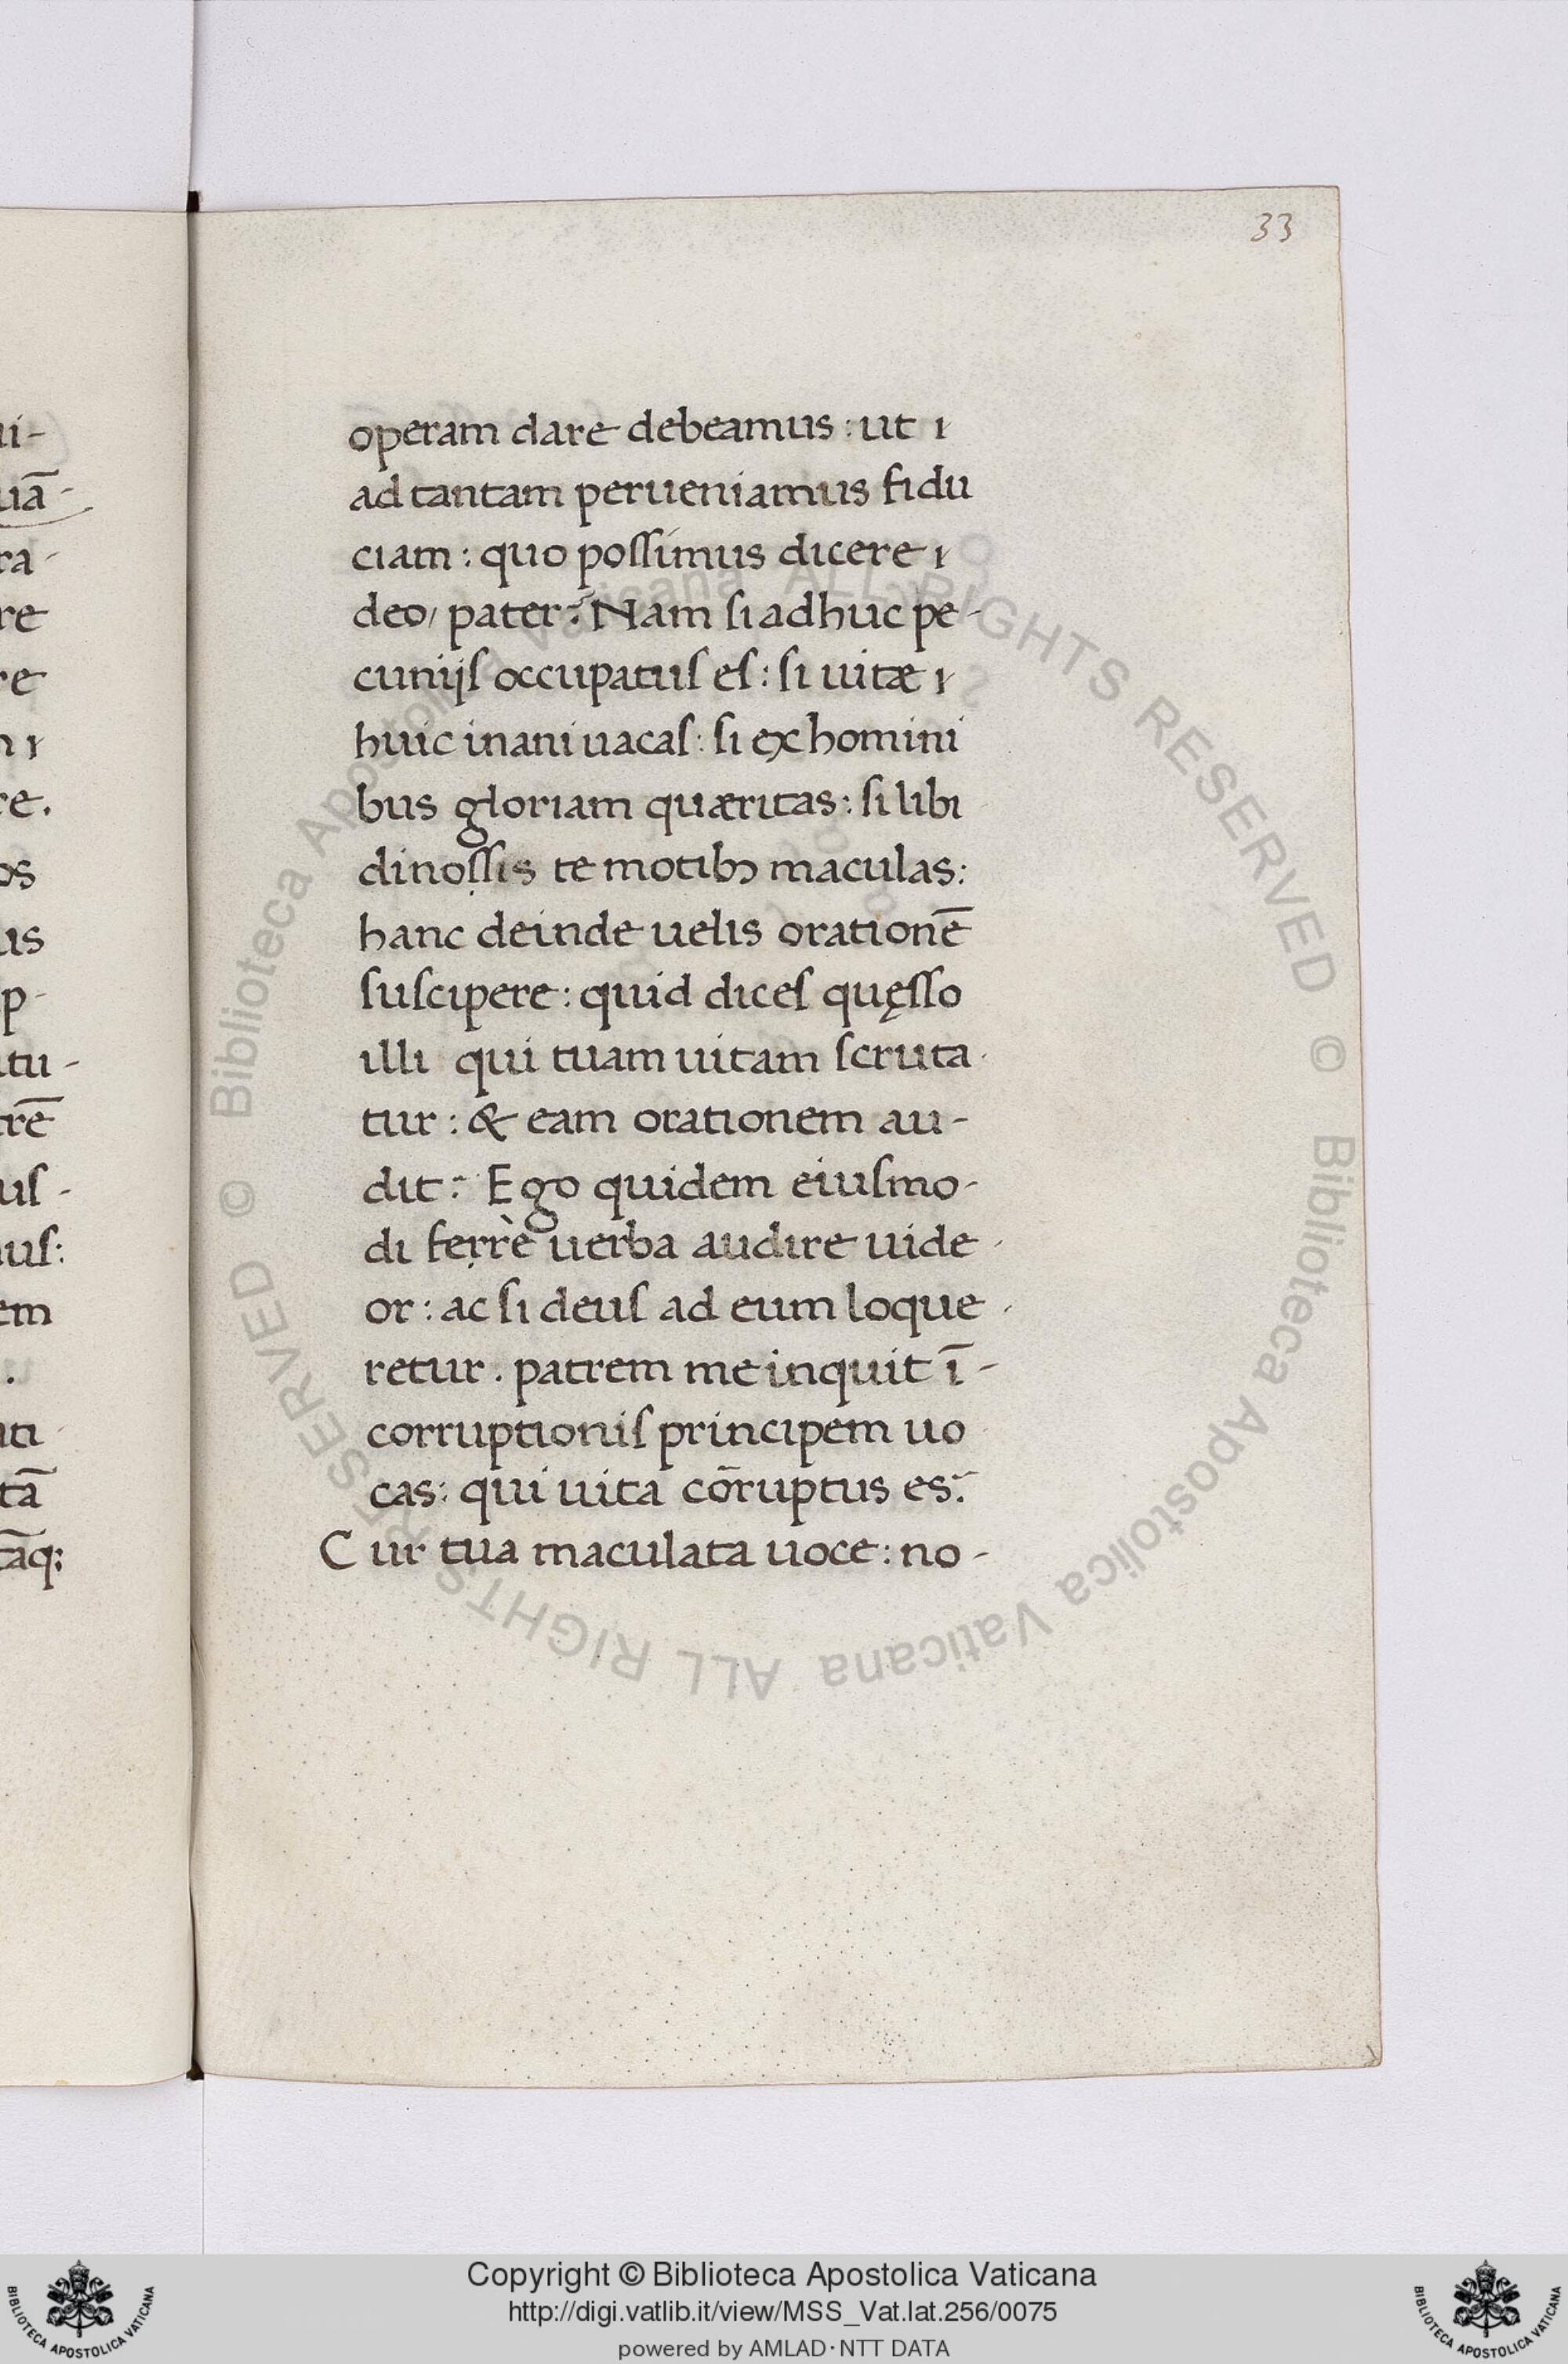 33
operam dare debeamus : ut ı
ad tantam perueniamus fidu
ciam : quo poſſimus dicere ı
deo, pater? Nam ſi adhuc pe-
cunijſ occupatuſ eſ : ſi uitæ ı
huic inani uacaſ : ſi ex homini
bus gloriam quæritas : ſi libi
dinoſſis te motibꝫ maculas :
hanc deinde uelis orationē
ſuſcipere : quid diceſ quęſſo
illi qui tuam uitam ſcruta-
tur : & eam orationem au-
dit? Ego quidem eiuſmo-
di ferrè uerba audire uide-
or : ac ſi deuſ ad eum loque-
retur . patrem me inquit ī-
corruptioniſ principem uo
cas : qui uita cōruptus es?
Cur tua maculata uoce : no-
ui-
uā-
ra-
re
re
n ı
re.
os
us
p-
tu-
trē
uſ-
uſ:
em
.
ti
tā
tāq;
© Biblioteca Apostolica Vaticana ALL RIGHTS RESERVED
© Biblioteca Apostolica Vaticana ALL RIGHTS RESERVED
Copyright © Biblioteca Apostolica Vaticana
http://digi.vatlib.it/view/MSS_Vat.lat.256/0075
powered by AMLAD·NTT DATA
BIBLIOTECA APOSTOLICA VATICANA
BIBLIOTECA APOSTOLICA VATICANA